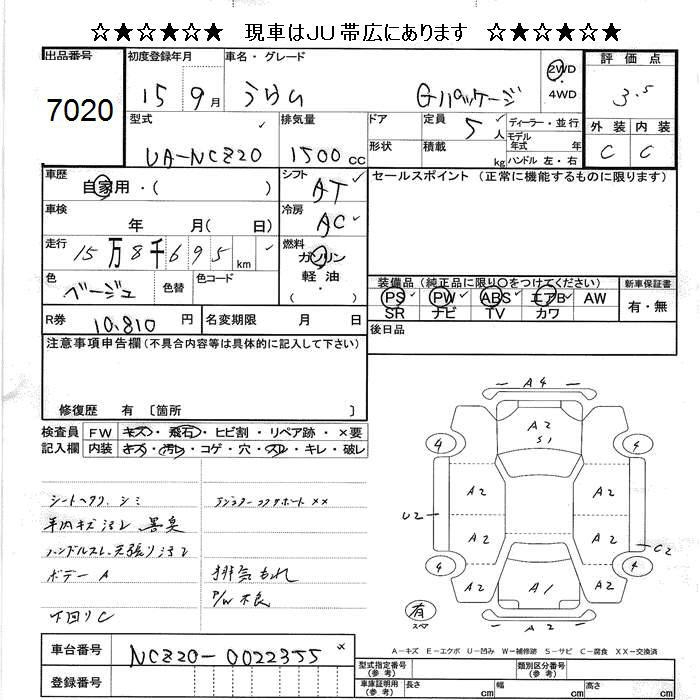 ☆★☆★☆★ 現車はJU帯広にあります ☆★☆★☆★
出品番号 初度登録年月 車名・グレード 評価点
7020 15 9月 ラウム Gパッケージ 2WD 4WD 3.5
型式 排気量 ドア 定員 5人 ディーラー・並行 外装 内装
UA-NCZ20 1500cc 形状 積載 kg モデル年式 年 ハンドル 左・右 C C
車歴 シフト セールスポイント (正常に機能するものに限ります)
自家用・( ) AT
車検 冷房
年 月( 日) AC
走行 燃料
15万8千695km ガソリン
軽油
色 色替 色コード ( ) 装備品 (純正品に限り○をつけてください) 新車保証書
ベージュ PS PW ABS エアB AW 有・無
SR ナビ TV カワ
R券 10,810円 名変期限 月 日 後日品
注意事項申告欄(不具合内容等は具体的に記入して下さい)
修復歴 有 〔箇所 〕
検査員 FW キズ・飛石・ヒビ割・リペア跡・×要
記入欄 内装 キズ・汚レ・コゲ・穴・スレ・キレ・破レ
シートヘタリ、シミ
車内キズ汚レ 異臭
ハンドルスレ、天張り汚レ
ボデー A
下回りC
ラジエターコアサポート××
排気もれ
P/W不良
A4
A2
S1
4 4
A2 A2
U2 A2 A2 C2
4 4
A2 A1 A2
有
スペア
A2
A-キズ E-エクボ U-凹み W-補修跡 S-サビ C-腐食 XX-交換済
車台番号 NCZ20-0022355
登録番号
型式指定番号(参考) 類別区分番号(参考)
車庫証明用(参考) 長さ cm 幅 cm 高さ cm